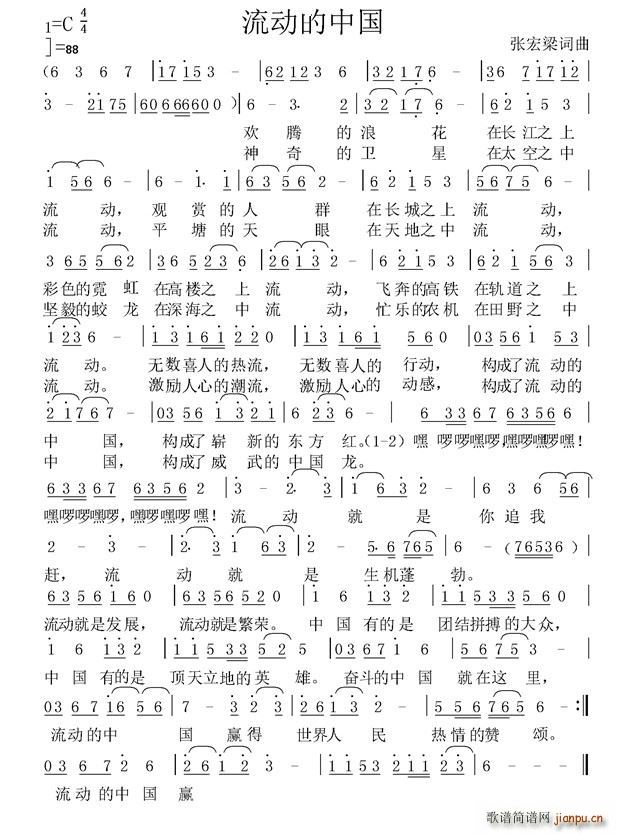 流动的中国
1=C 4/4
♩=88
张宏梁词曲
(6 3 6 7 | 1 7 1 5 3 - | 6 2 1 2 3 6 | 3 2 1 7 6 - | 3 6· 7 1 2
3 - 2 1 7 5 | 6 0 6 6 6 6 0 0 ) | 6 - 3· 2 | 3 2 1 7 6 - | 6 2 1 5 3
欢腾的浪花 在长江之上
神奇的卫星 在太空之中
1 5 6 6 - | 6 - 1· 1 | 6 3 5 6 2 - | 6 2 1 5 3 | 5 6 7 5 6 - |
流动，观赏的人群 在长城之上流动，
流动，平塘的天眼 在天地之中流动，
3 6 5 5 6 2 | 3 6 5 2 3 6 | 2 6 1 3 1 - | 6 2 1 5 3 | 6 2 1 5 3 |
彩色的霓虹 在高楼之上流动，飞奔的高铁 在轨道之上
坚毅的蛟龙 在深海之中流动，忙乐的农机 在田野之中
1 2 2 3 - | 1 3 1 6 1 | 1 3 1 6 1 | 5 6 0 | 0 3 5 6 1 5 3 |
流动。无数喜人的热流，无数喜人的行动，构成了流动的
流动。激励人心的潮流，激励人心的动感，构成了流动的
2 1 7 6 7 - | 0 3 5 6 1 3 2 1 | 6 2 3 6 - | 6 3 3 6 7 6 3 5 6 6 |
中国，构成了崭新的东方红。(1-2)嘿啰啰嘿啰,嘿啰嘿啰嘿!
中国，构成了威武的中国龙。
6 3 3 6 7 6 3 5 6 6 | 3 - 3· 2 | 3 - 2· 3 | 1 6 3 6 - | 6 3 5 6 |
嘿啰啰嘿啰,嘿啰嘿啰嘿! 流动就是你追我
2 - 3 - | 2· 3 1 6 3 | 2 - - - | 5· 6 7 6 5 | 6 - (7 6 5 3 6) |
赶，流动就是生机蓬勃。
6 3 5 6 1 6 0 | 6 3 5 6 1 6 0 | 1 6 1 3 1 2 | 1 1 5 5 3 3 0 |
流动就是发展，流动就是繁荣。中国有的是 团结拼搏的大众，
1 6 1 3 1 2 | 1 1 5 3 3 - | 3 5 2 2 - | 6 6 7 6 5 3 5 0 |
中国有的是 顶天立地的英雄。奋斗的中国就在这里，
0 3 6 7 6 2 | 7 - 3 2 3 | 2 2 3 2 - | 5 5 3 7 6 5 6 - :‖
流动的中国赢得世界人民热情的赞颂。
0 3 6 7 2 2 | 6 - 1 5 2 3 | 2 2 3 2 - | 1 1 5 2 1 1 3 - ‖
流动的中国赢
歌谱简谱网
jianpu.cn